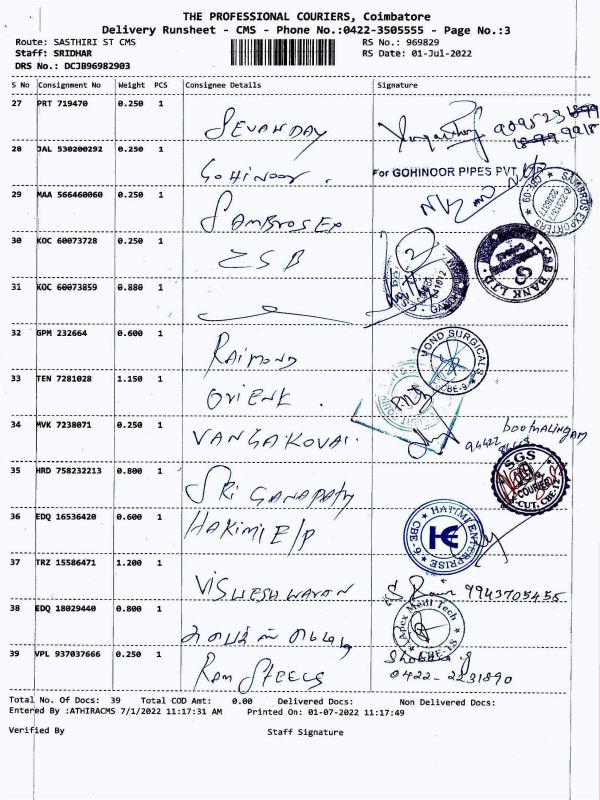 THE PROFESSIONAL COURIERS, Coimbatore
Delivery Runsheet - CMS - Phone No.:0422-3505555 - Page No.:3
Route: SASTHIRI ST CMS RS No.: 969829
Staff: SRIDHAR RS Date: 01-Jul-2022
DRS No.: DCJB96982903
S No Consignment No Weight PCS Consignee Details Signature
27 PRT 719470 0.250 1
SEVANDAY
28 JAL 530200292 0.250 1
GOHINOOR. For GOHINOOR PIPES PVT
29 MAA 566460060 0.250 1
SAMBROS EXPORTERS CBE-09
SAMBROS EX
30 KOC 60073728 0.250 1
CSB CSB BANK LTD.
31 KOC 60073859 0.880 1
32 GPM 232664 0.600 1
RAIMOND MOND SURGICALS CBE-9
33 TEN 7281028 1.150 1
ORIENT.
34 MVK 7238071 0.250 1
VANGAKOVAI. boothalingam
94422
35 HRD 758232213 0.800 1
SRI GANAPATHY SGS COURIER
36 EDQ 16536420 0.600 1
HAKIMI E/P HATIMI ENTERPRISE CBE-6
37 TRZ 15586471 1.200 1
VISHESHWARAN S Ravi 9943705455
38 EDQ 18029440 0.800 1
Apex Medi Tech CBE-18
39 VPL 937037666 0.250 1
RAM STEELS 0422-2231890
Total No. Of Docs: 39 Total COD Amt: 0.00 Delivered Docs: Non Delivered Docs:
Entered By :ATHIRACMS 7/1/2022 11:17:31 AM Printed On: 01-07-2022 11:17:49
Verified By Staff Signature